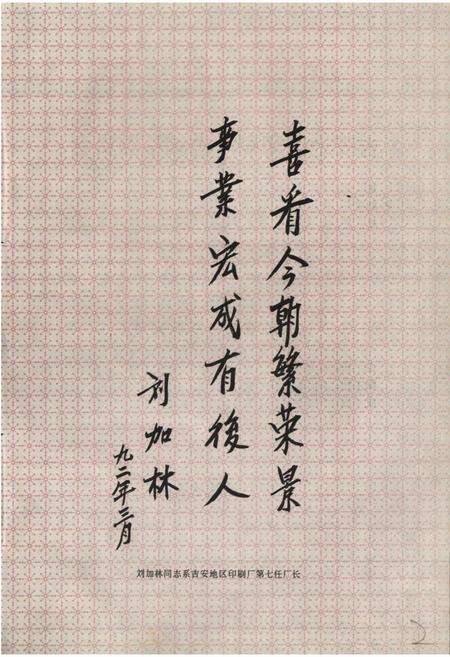 喜看今朝繁荣景
事業宏成有後人
刘加林
九二年三月
刘加林同志系吉安地区印刷厂第七任厂长